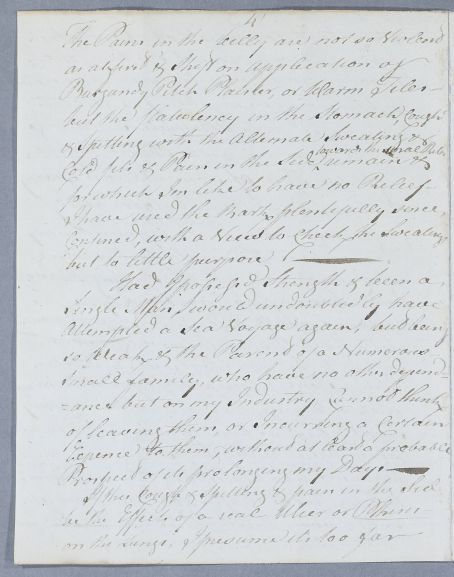 4
The Pains in the belly are not so Violent
as at first & Shift on application of
Burgundy Pitch Plaister, or Warm Tiles
but the Flatulency in the Stomach, Cough
& Spitting with the Alternate Sweating &
towards the small Ribs
Cold fits & Pain in the Side remain &
for which I'm like to have no Relief
I have used the Bark plentifully since
Confined, with a View to Check the Sweating
but to little purpose
Had I possess'd strength & been a
Single Man, I would undoubtedly have
Attempted a Sea Voyage again; but being
so Weak & the Parent of a Numerous
small family, who have no other depend-
=ance but on my Industry Cannot think
of leaving them or Incurring a Certain
Expence to them, without at least a probable
Prospect of its prolonging my Days
If this Cough & Spitting & pain in the Side
be the Effects of a real Ulcer or
on the Lungs, I presume its too far